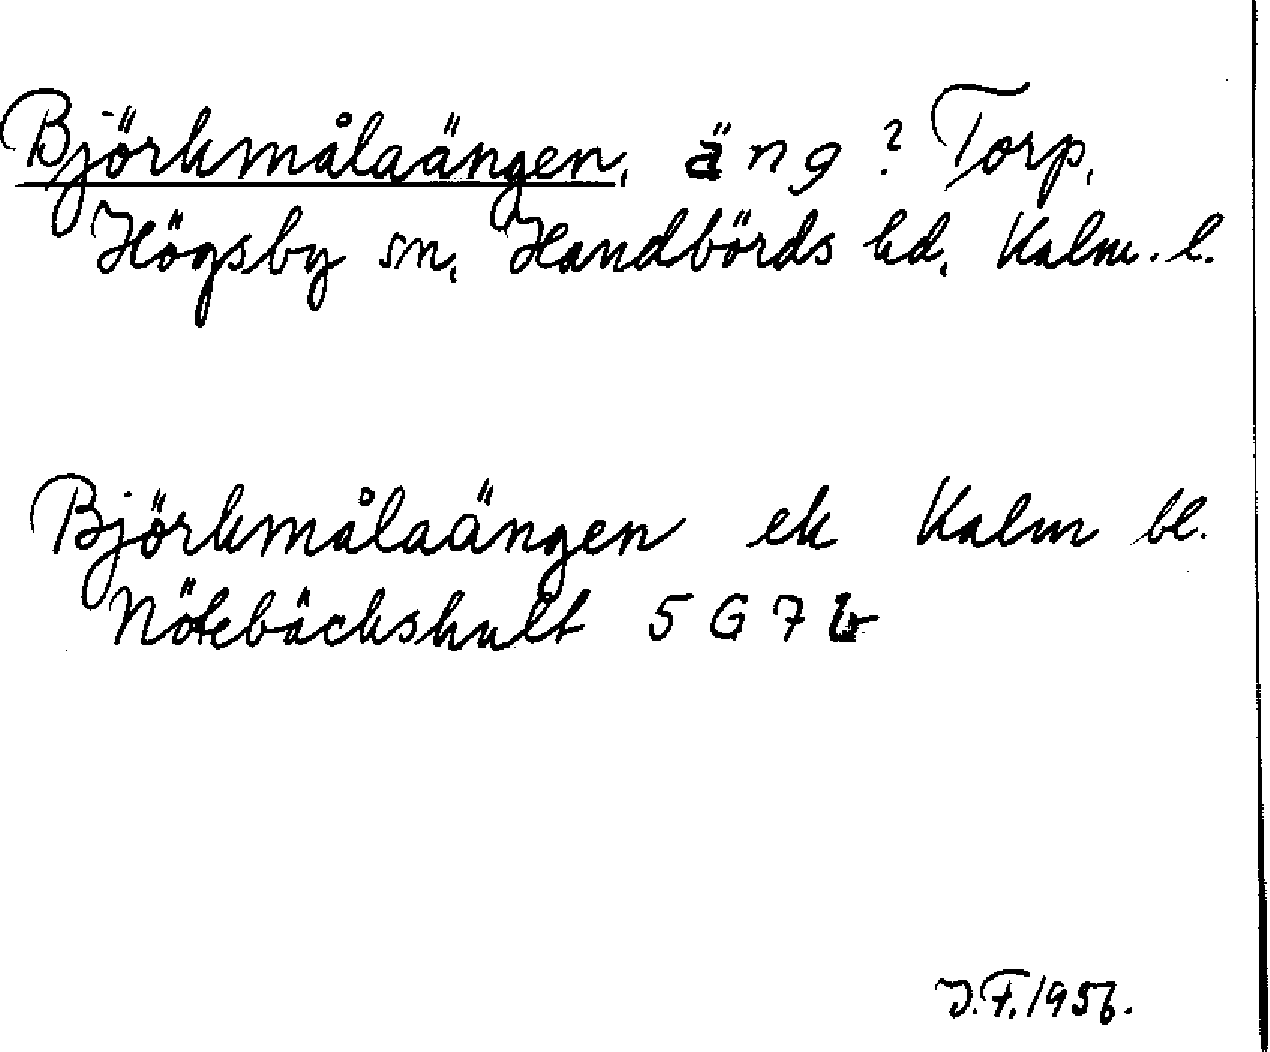 Björkmålaängen, äng? Torp,
Högsby sn, Handbörds hd, Kalm. l.
Björkmålaängen ek Kalm bl.
Nötebäckshult 5 G 7 b
J.F. 1956.